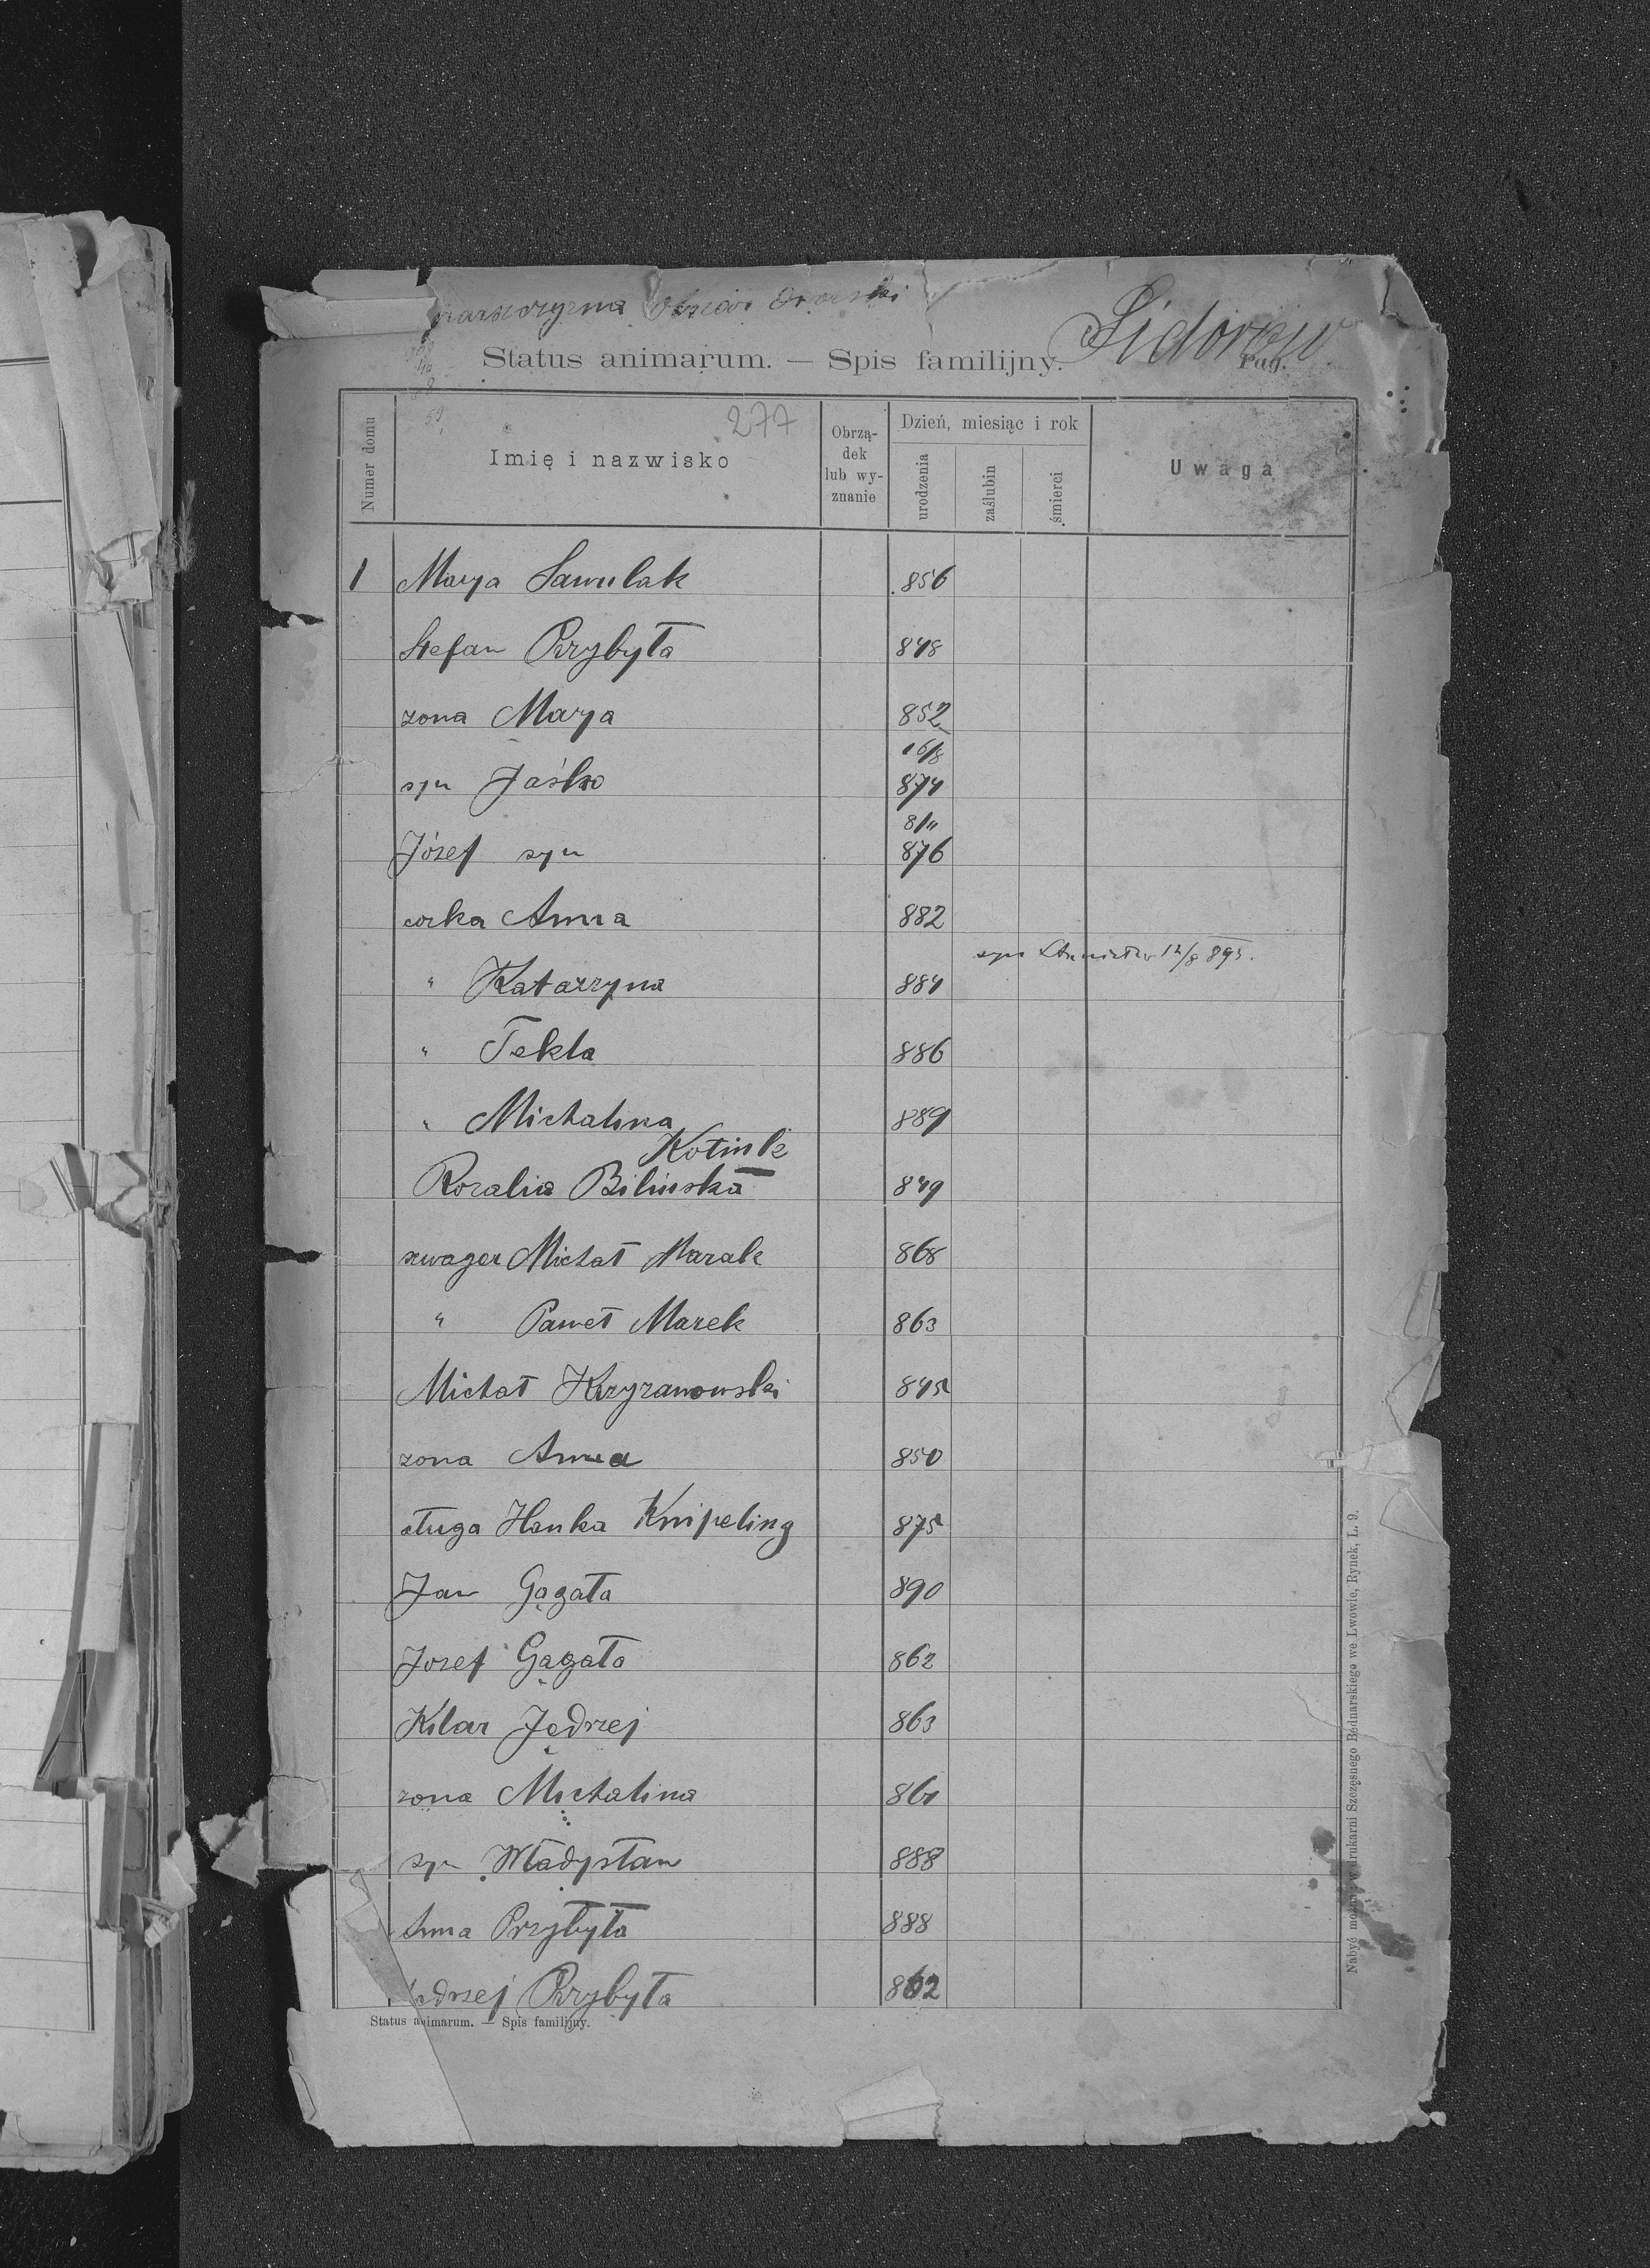 Obszar dworski
Sidorów
Status animarum. — Spis familijny. Pag.
277
Numer domu
Imię i nazwisko
Obrzą-
dek
lub wy-
znanie
Dzień, miesiąc i rok
urodzenia
zaślubin
śmierci
Uwaga
1 Marya Sawulak 856
Stefan Przybyła 848
zona Marya 852
16/8
syn Jaśko 874
8/11
Józef syn 876
corka Anna 882
syn Stanisław 12/8 895.
" Katarzyna 884
" Tekla 886
" Michalina 889
Kotinle
Rozalia Bilinska 849
szwager Michał Marak 868
" Paweł Marek 863
Michał Krzyzanowski 845
zona Anna 850
sługa Hanka Knipeling 875
Jan Gągała 890
Jozef Gągała 862
Kilar Jędrzej 863
zona Michalina 861
syn Władysław 888
Anna Przybyła 888
Jędrzej Przybyła 862
Status animarum. — Spis familijny.
Nabyć można w drukarni Szczęsnego Bednarskiego we Lwowie, Rynek, L. 9.